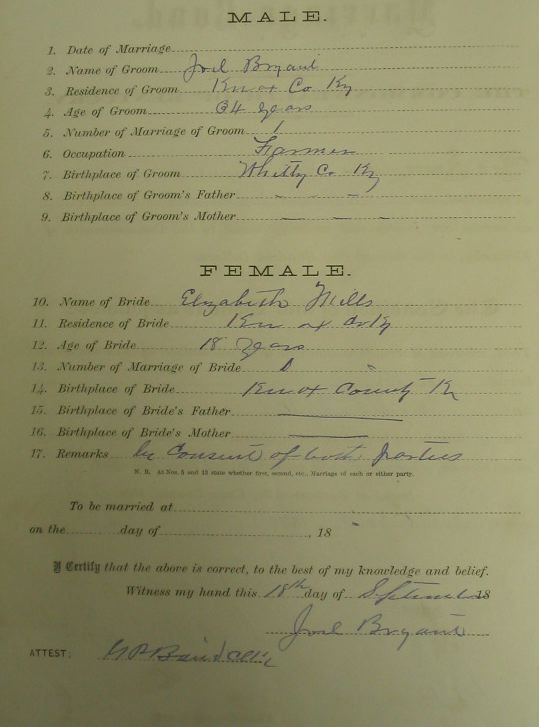 MALE.
1. Date of Marriage
2. Name of Groom Joel Bryant
3. Residence of Groom Knox Co Ky
4. Age of Groom 34 years
5. Number of Marriage of Groom 1
6. Occupation Farmer
7. Birthplace of Groom Whitly Co. Ky
8. Birthplace of Groom's Father — —
9. Birthplace of Groom's Mother — — —
FEMALE.
10. Name of Bride Elizabeth Mills
11. Residence of Bride Knox Co Ky
12. Age of Bride 18 years
13. Number of Marriage of Bride 1 "
14. Birthplace of Bride Knox County Ky
15. Birthplace of Bride's Father ———
16. Birthplace of Bride's Mother ———
17. Remarks by Consent of both parties
N. B. At Nos. 5 and 13 state whether first, second, etc., Marriage of each or either party.
To be married at
on the day of , 18
I Certify that the above is correct, to the best of my knowledge and belief.
Witness my hand this 18th day of September 18
Joel Bryant
ATTEST: